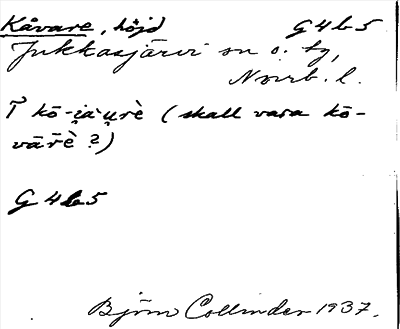 Kåvare, höjd G4b5
Jukkasjärvi sn o. tg,
Norrb. l.
T kō-i̯àu̯rè (skall vara kō-
vār̄è ?)
G4b5
Björn Collinder 1937.